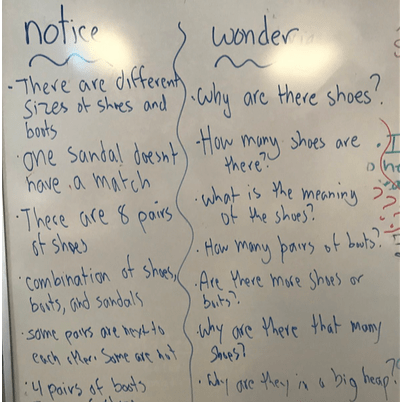 notice
- There are different
sizes of shoes and
boots
· one sandal doesn't
have a match
· These are 8 pairs
of shoes
· combination of shoes,
boots, and sandals
· some pairs are next to
each other. Some are not
· 4 pairs of boots
wonder
· Why are there shoes?
· How many shoes are
there?
· What is the meaning
of the shoes?
· How many pairs of boots?
· Are there more shoes or
boots?
· Why are there that many
shoes?
· Why are they in a big heap?